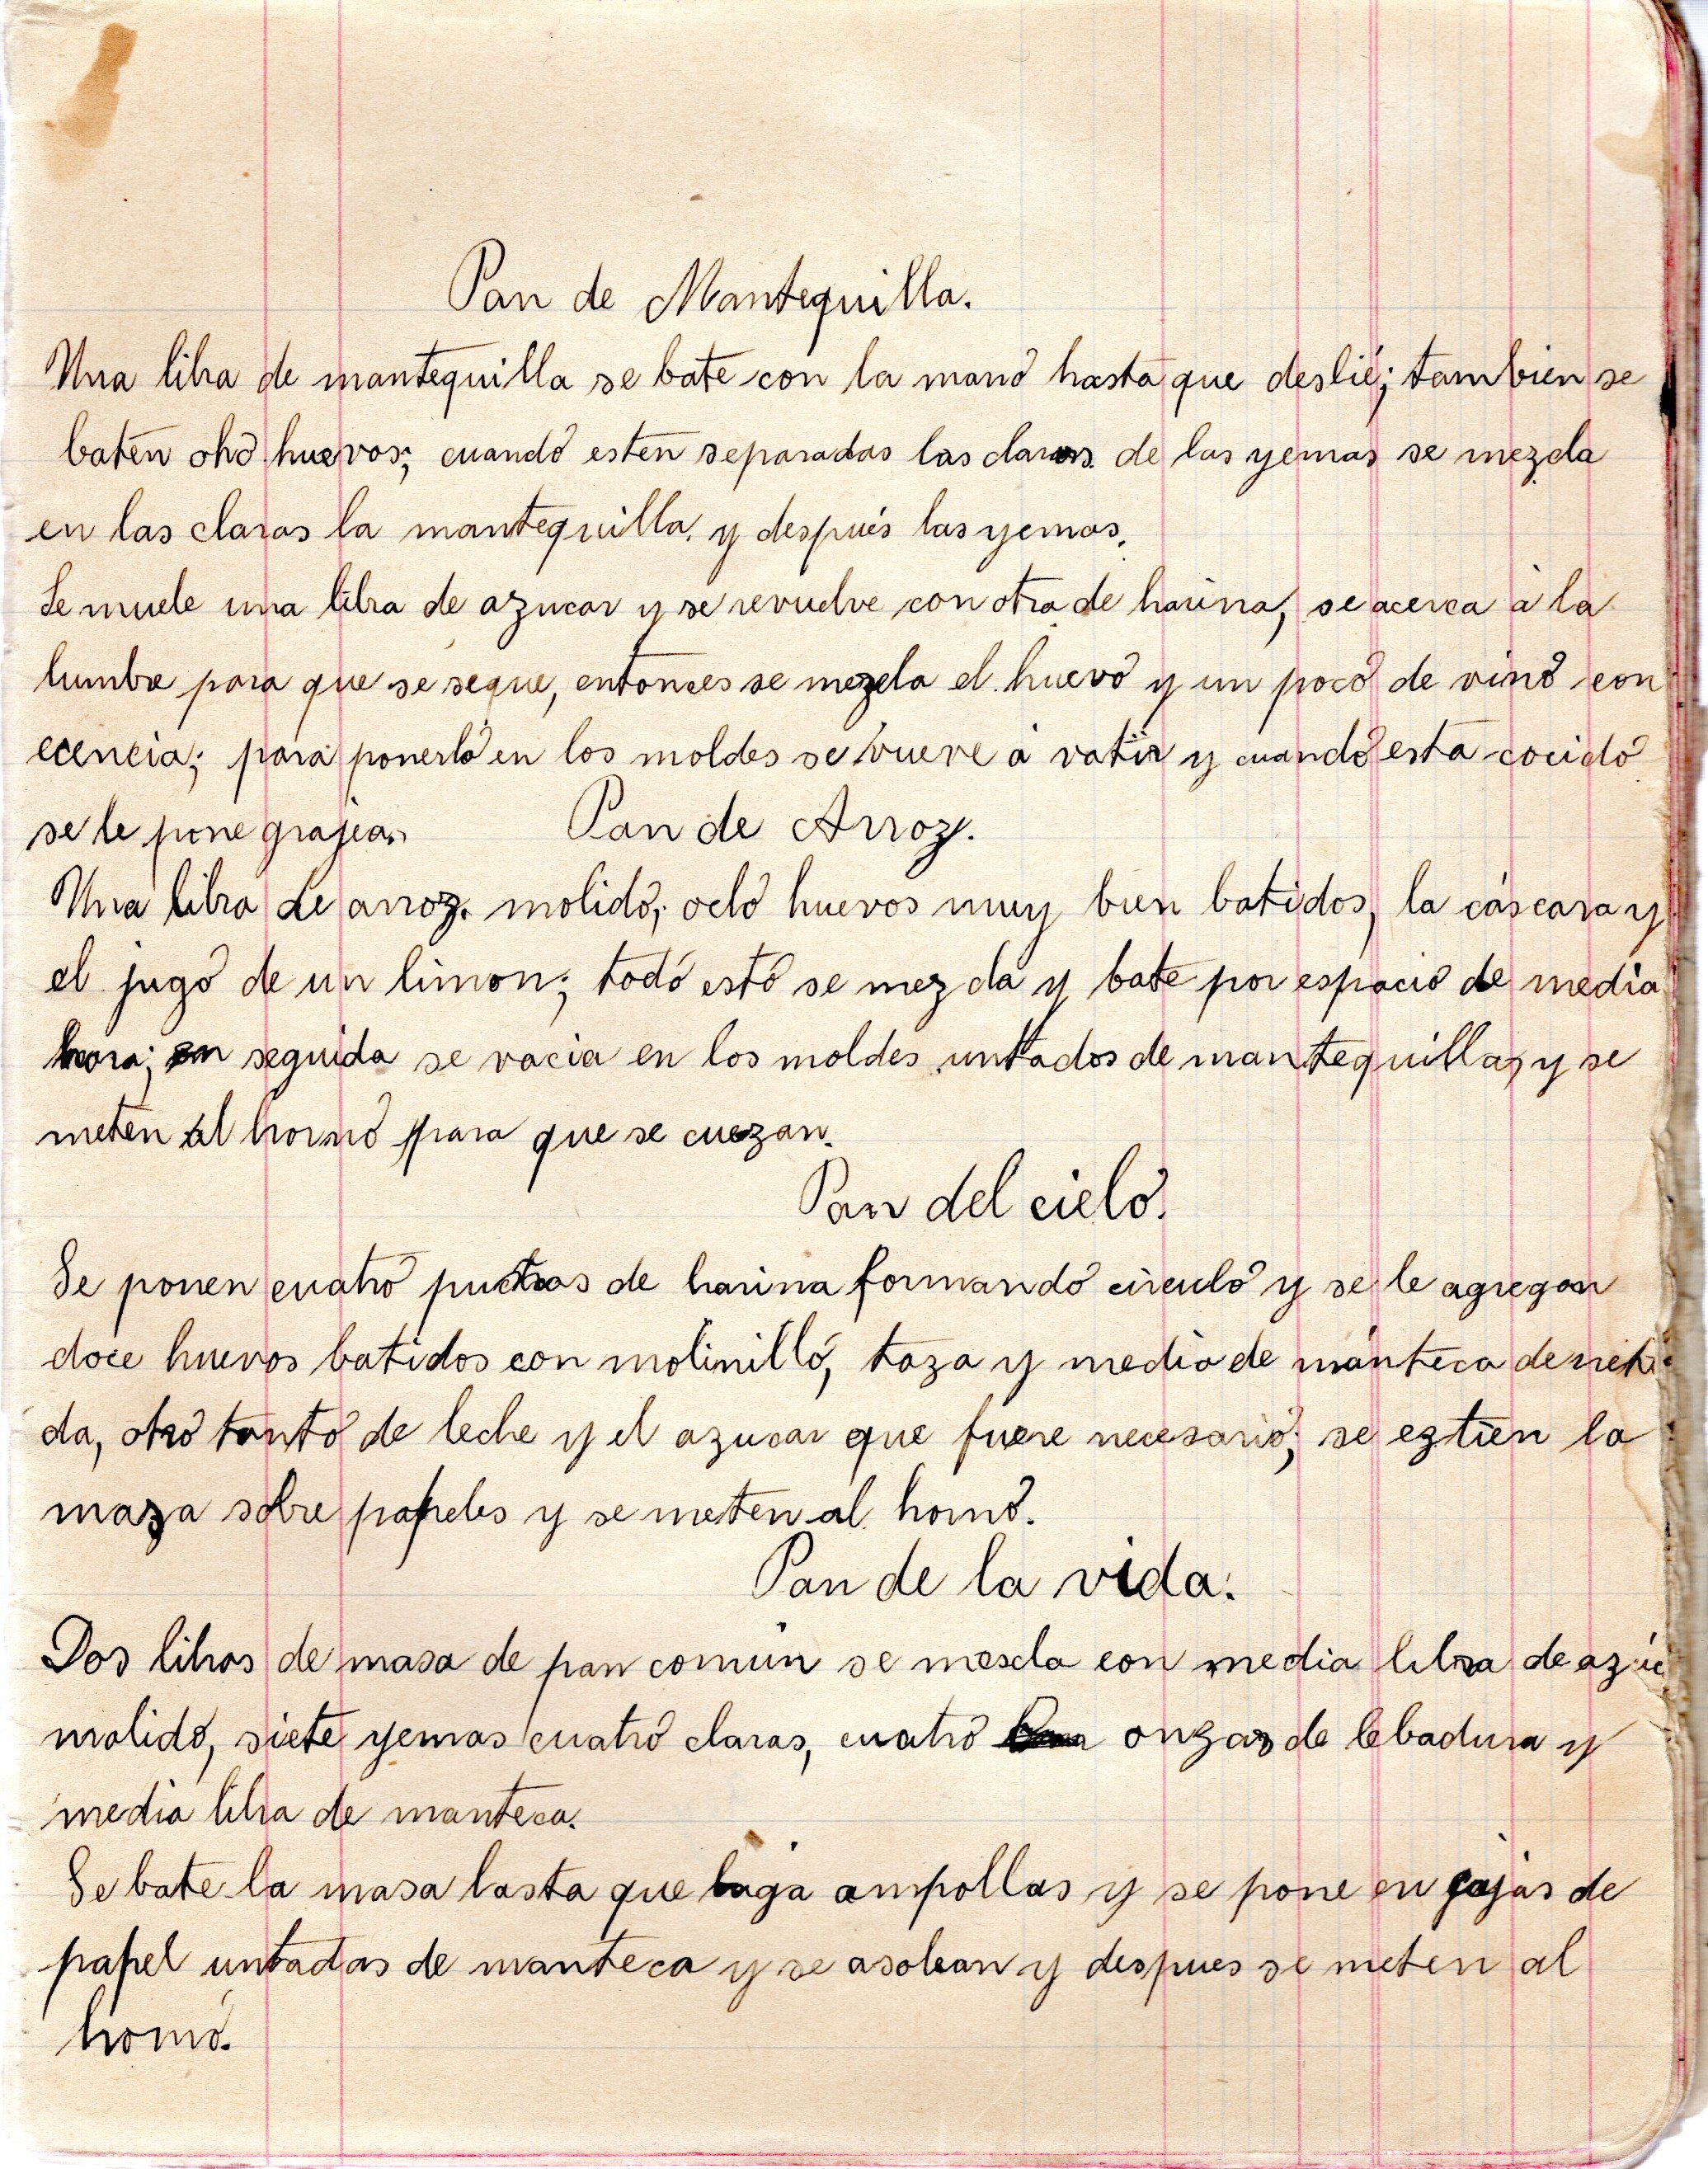 Pan de Mantequilla.
Una libra de mantequilla se bate con la mano hasta que deslié; tambien se
baten oho huevos; cuando esten separadas las claras de las yemas se mezcla
en las claras la mantequilla, y después las yemas.
Se muele una libra de azucar y se revuelve con otra de harina, se acerca à la
lumbre para que se seque, entonces se mezcla el huevo y un poco de vino con
ecencia; para ponerlo en los moldes se vueve á vatir y cuando esta cocido
se le pone grajea. Pan de Arroz.
Una libra de arroz molido, ocho huevos muy bien batidos, la cáscara y
el jugo de un limon; todo esto se mezcla y bate por espacio de media
hora; en seguida se vacia en los moldes untados de mantequilla, y se
meten al horno para que se cuezan.
Pan del cielo.
Se ponen cuatro de harina formando circulo y se le agregan
doce huevos batidos con molinillo, taza y media de manteca derreti
da, otro tanto de leche y el azucar que fuere necesario; se eztien la
maza sobre papeles y se meten al horno.
Pan de la vida.
Dos libras de masa de pan común se mescla con media libra de azúc
molido, siete yemas cuatro claras, cuatro onzas de lebadura y
media libra de manteca.
Se bate la masa hasta que haga ampollas y se pone en cajas de
papel untadas de manteca y se asolean y despues se meten al
horno.